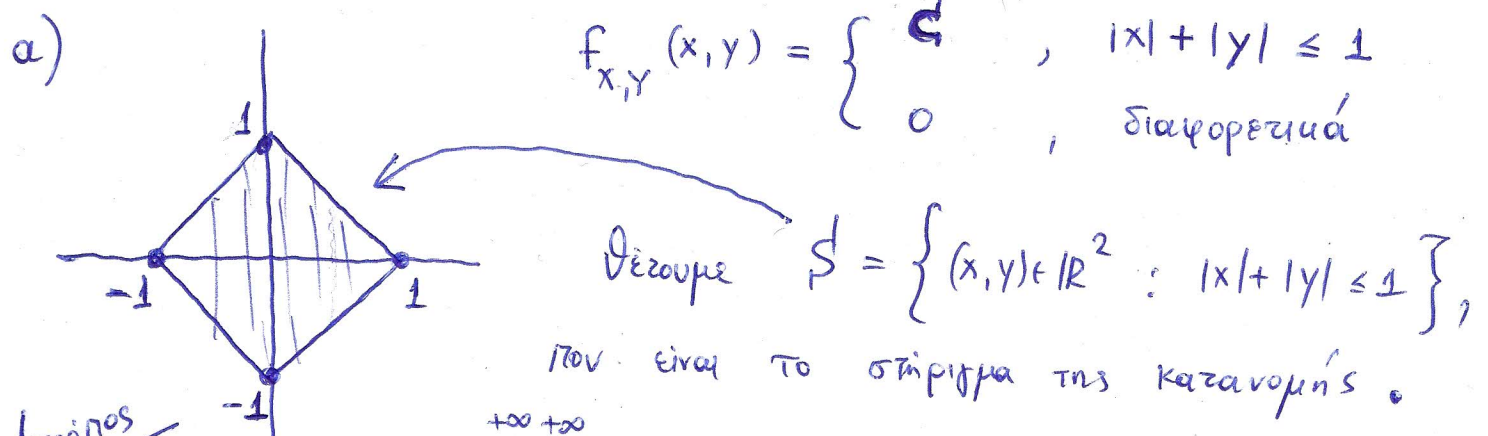 α)
f_{X,Y} (x,y) = { C , |x| + |y| ≤ 1
0 , διαφορετικά
1
-1
1
-1
θέτουμε S = { (x,y) ∈ ℝ² : |x| + |y| ≤ 1 },
που είναι το στήριγμα της κατανομής.
+∞ +∞